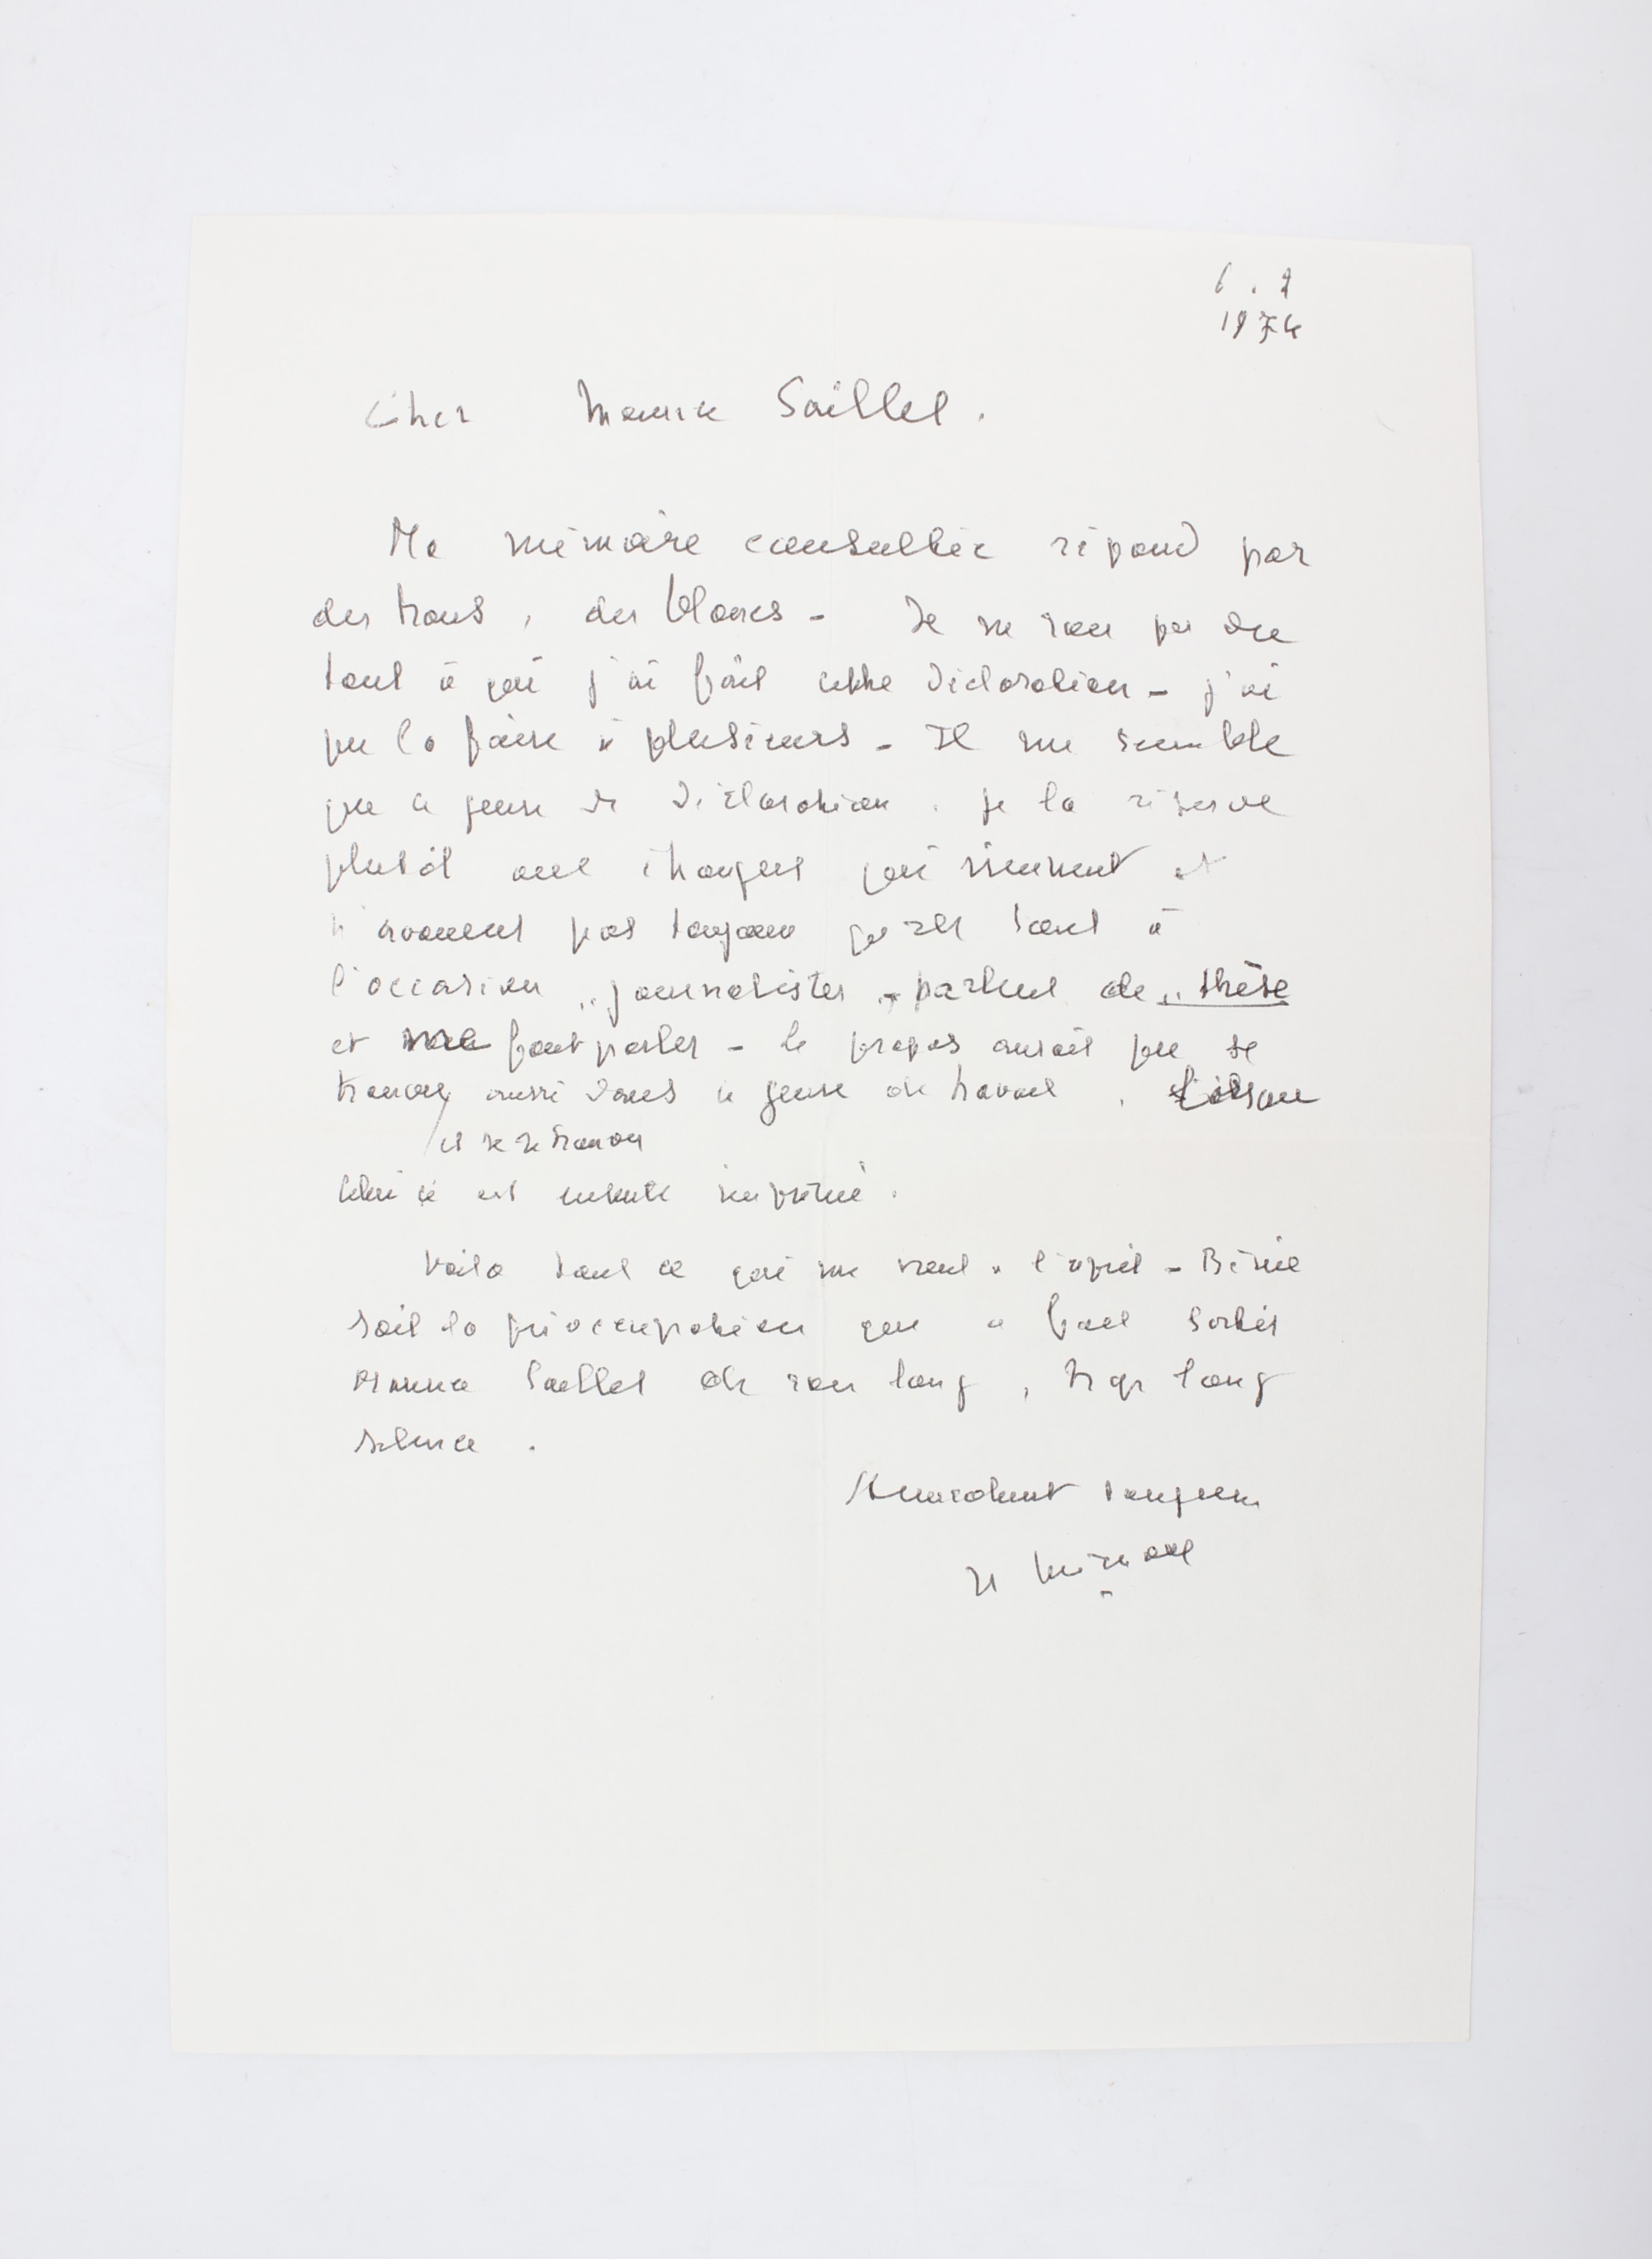 6 . 2
1974
Cher Maurice Saillet.
Ma mémoire consultée répond par
des trous, des blancs - Je ne sais pas du
tout à qui j'ai fait cette déclaration - j'ai
pu la faire à plusieurs - Il me semble
que ce genre de déclaration, je la réserve
plutôt aux étrangers qui viennent et
n'avouent pas toujours qu'ils sont à
l'occasion "journalistes", parlent de "thèse
et me font parler - Le propos aurait pu se
trouver aussi dans ce genre de travail,
et se retrouver
celui ci est ensuite imprimé.
Voilà tout ce qui me vient à l'esprit - Bénie
soit la préoccupation qui a fait sortir
Maurice Saillet de son long, trop long
silence.
Amicalement toujours
H Michaux